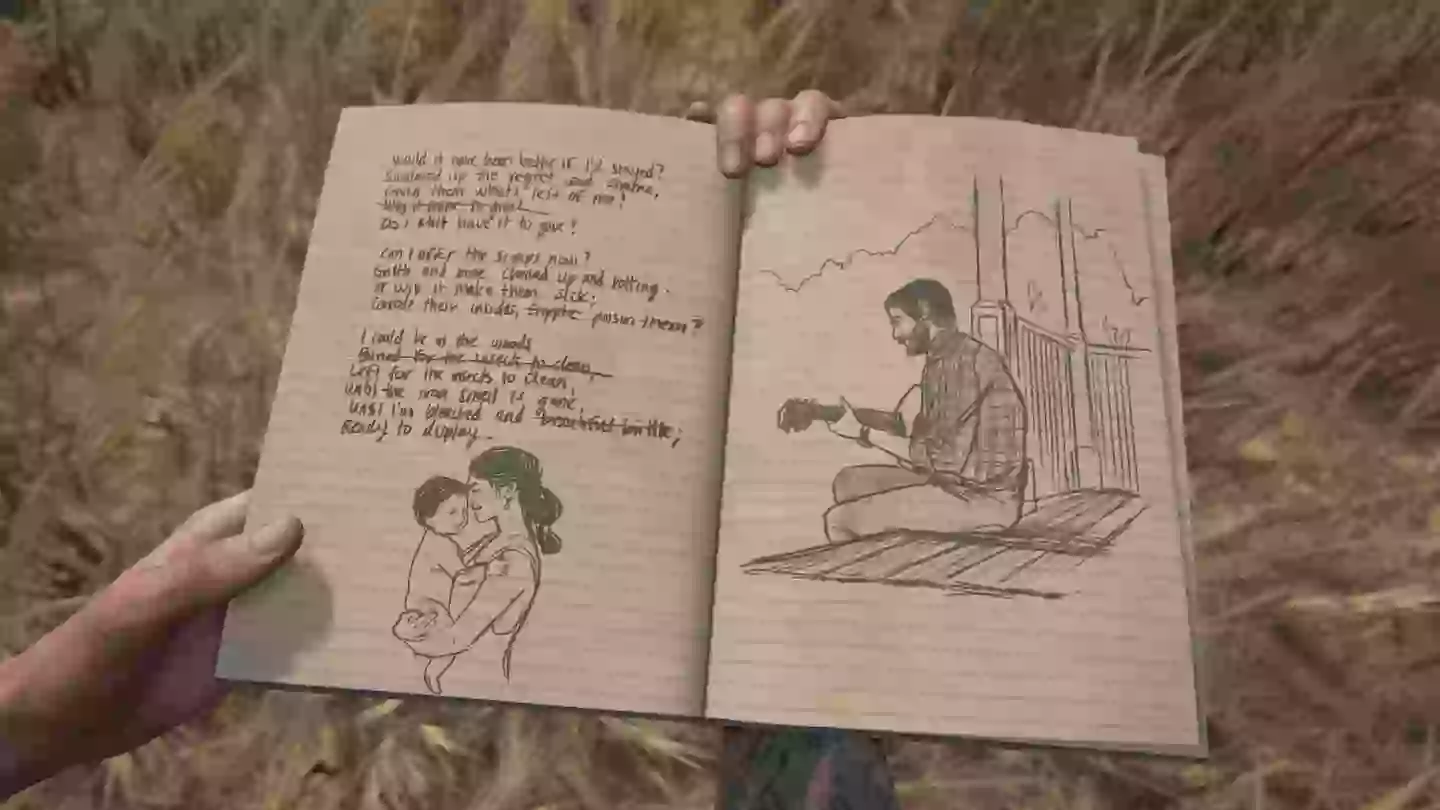 would it have been better if I'd stayed?
Swallowed up the regret and shame,
Given them what's left of me?
Do I still have it to give?
Can I offer the scraps now?
Guilt and bone chewed up and rotting.
Or will it make them sick;
their insides, poison them?
I could be in the woods
Buried for the insects to clean,
Left for the insects to clean,
Until the smell is gone
Until I'm bleached and brittle;
Ready to display.